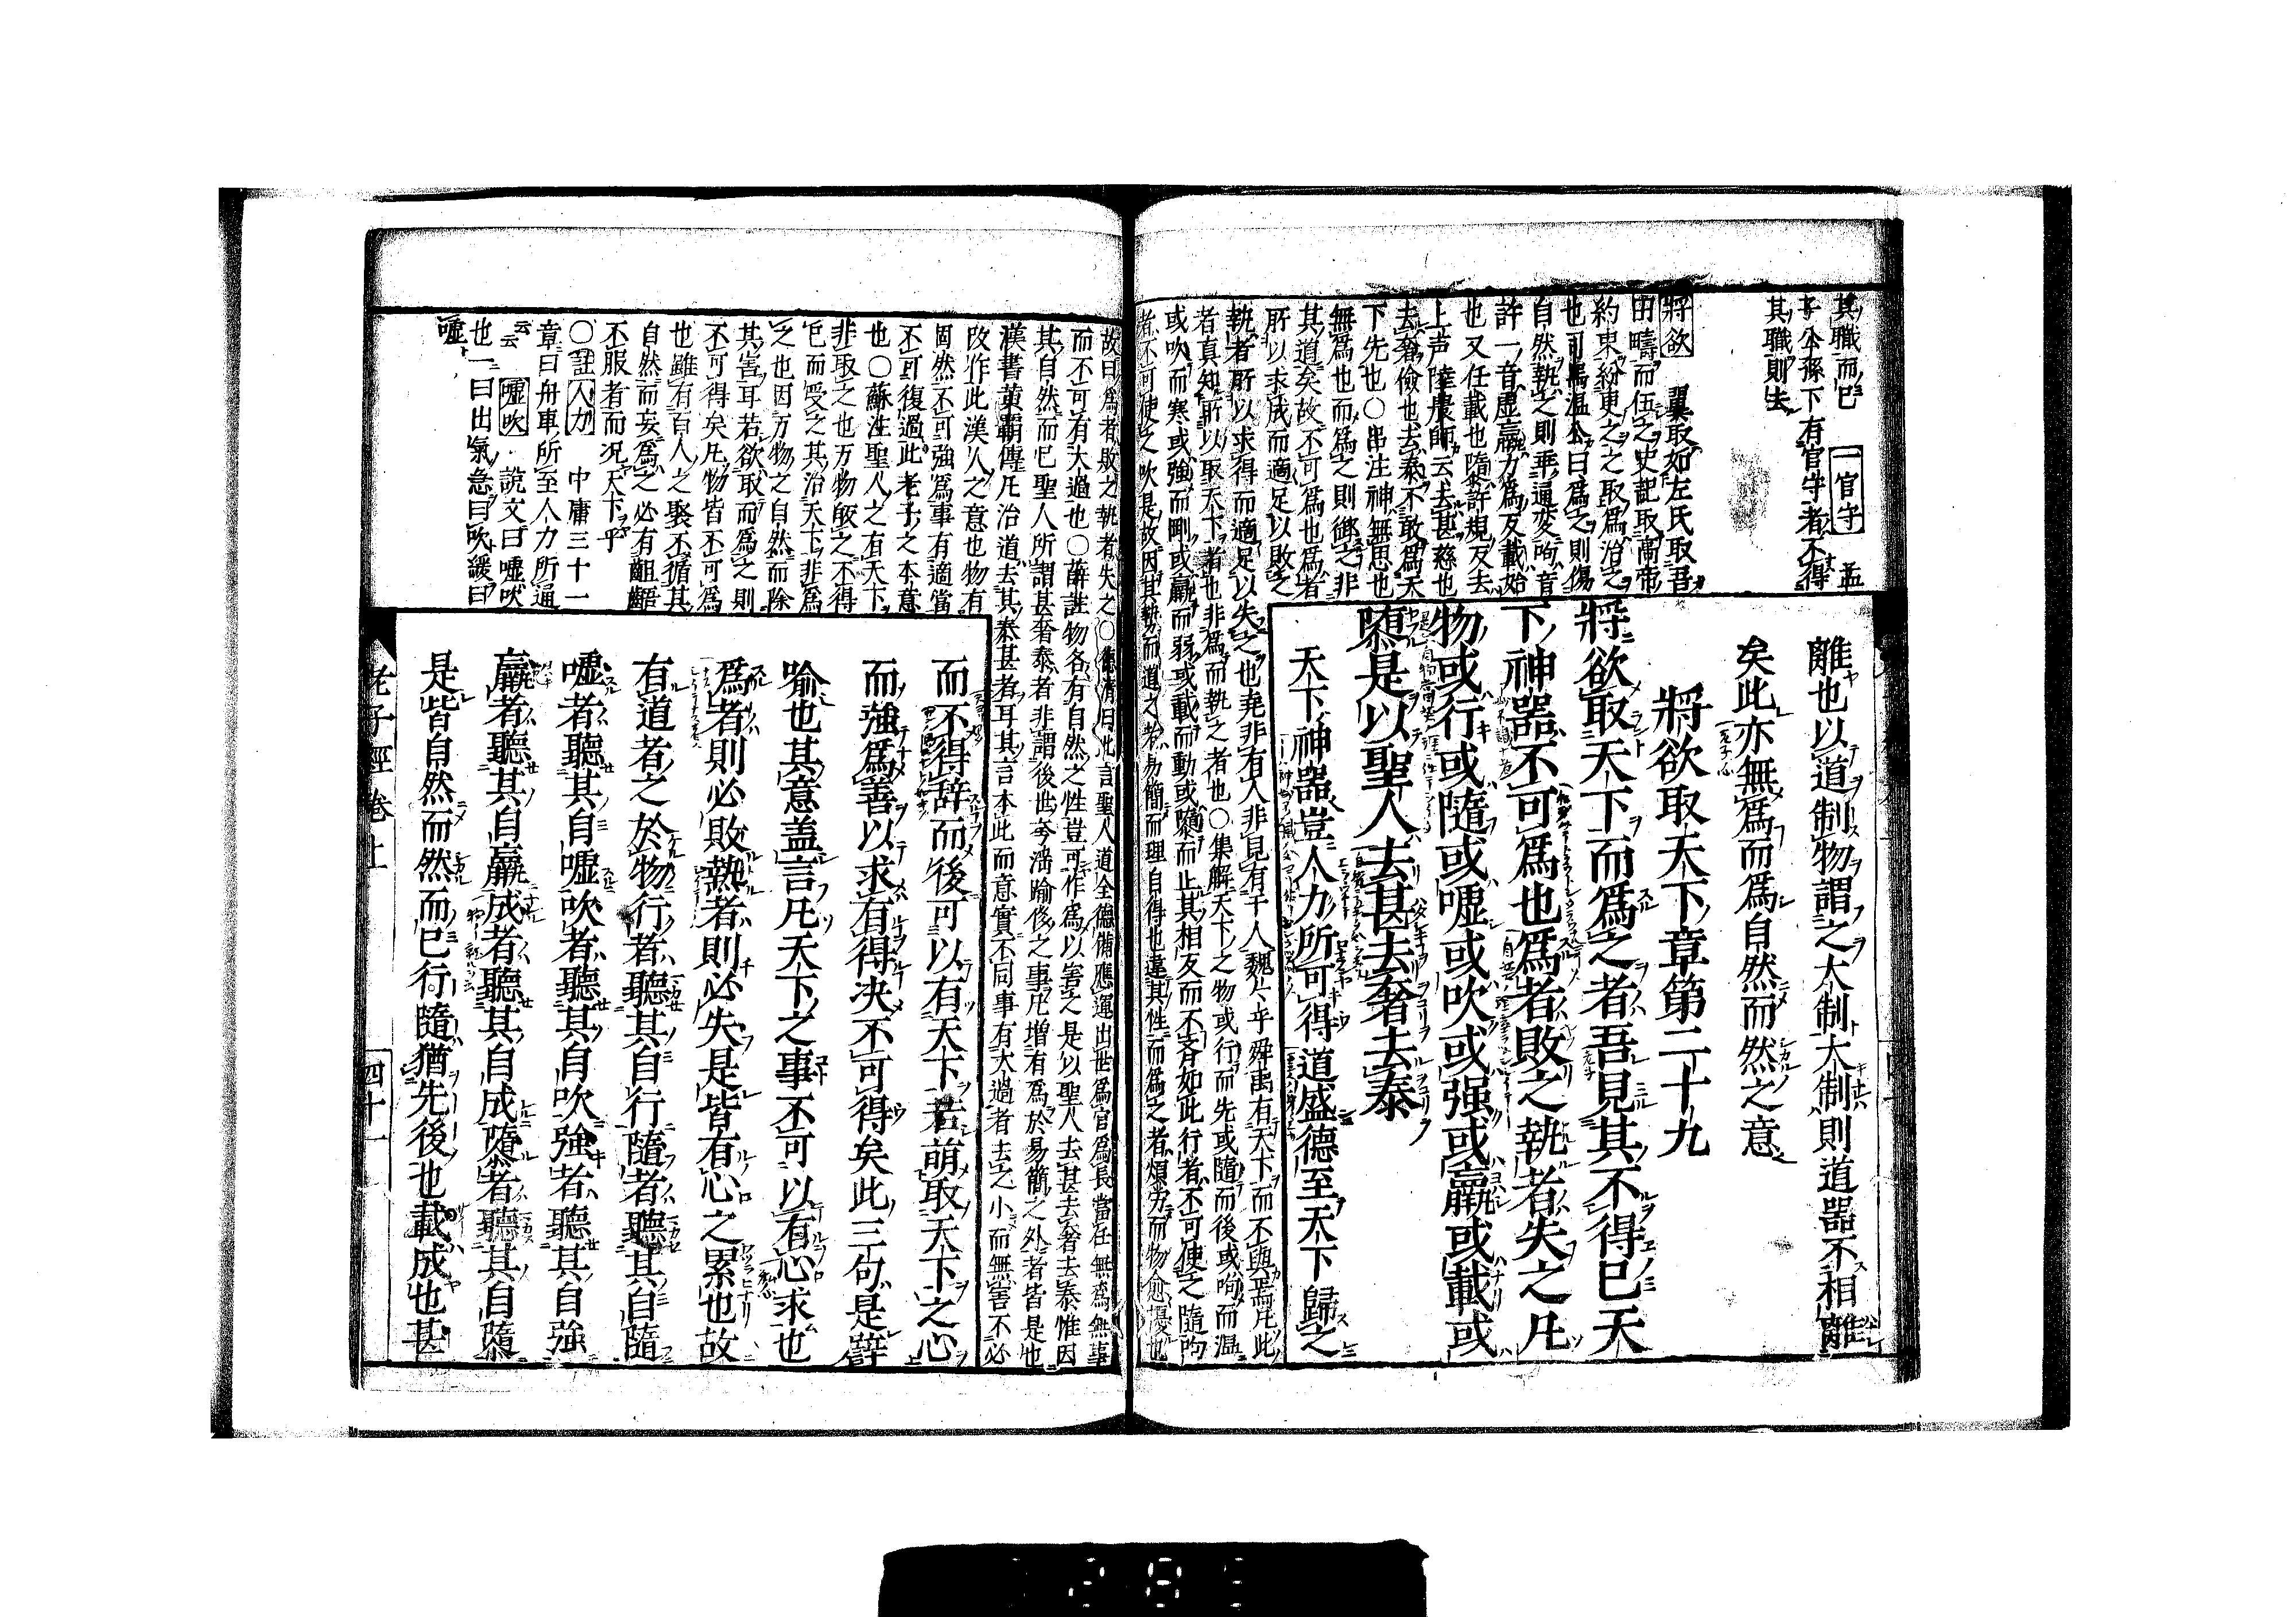 離也以道制物謂之大制大制則道器不相離
矣此亦無爲而爲自然而然之意
將欲取天下章第二十九
將欲取天下而爲之者吾見其不得已天
下神器不可爲也爲者敗之執者失之凡
物或行或隨或噓或吹或强或羸或載或
隳是以聖人去甚去奢去泰
天下神器豈人力所可得道盛德至天下歸之
而不得辞而後可以有天下若萌取天下之心
而強爲善以求有得决不可得矣此三句是譬
喻也其意盖言凡天下之事不可以有心求也
爲者則必敗執者則必失是皆有心之累也故
有道者之於物行者聽其自行隨者聽其自隨
噓者聽其自噓吹者聽其自吹強者聽其自強
羸者聽其自羸成者聽其自成隳者聽其自隳
是皆自然而然而已行隨猶先後也載成也甚
其職而已 一官守 孟
子公孫下有官守者不得
其職則去
將欲 翼取如左氏取吾
田疇而伍之史記取高帝
約束紛更之之取爲治之
也可馬温公曰爲之則傷
自然執之則乖通変呴音
許一音虛羸力爲反載始
也又任載也隳許規反去
上声陸農師云去甚慈也
去奢儉也去泰不敢爲天
下先也〇呂注神無思也
無爲也而爲之則御之非
其道矣故不可爲也爲者
所以求成而適足以敗之
執者所以求得而適足以失之也尭非有人非見有于人魏〻乎舜禹有天下而不與焉凡此
者真知所以取天下者也非爲而執之者也〇集解天下之物或行而先或隨而後或呴而温
或吹而寒或強而剛或羸而弱或載而動或隳而止其相反而不斉如此行者不可使之隨呴
者不可使之吹是故因其勢而道之若易簡而理自得也違其性而爲之者煩労而物愈擾也
故曰爲者敗之執者失之〇德清曰此言聖人道全德備應運出世爲官爲長當在無爲無事
而不可有大過也〇薛註物各有自然之性豈可作爲以害之是以聖人去甚去奢去泰惟因
其自然而已聖人所謂甚奢泰者非謂後世夸満踰侈之事凡增有爲於易簡之外者皆是也
漢書黄覇傳凡治道去其泰甚者耳其言本此而意實不同事有大過者去之小而無害不必
攺作此漢人之意也物有
固然不可強爲事有適當
不可復過此老子之本意
也〇蘇注聖人之有天下
非取之也万物皈之不得
已而受之其治天下非爲
之也因万物之自然而除
其害耳若欲取而爲之則
不可得矣凡物皆不可爲
也雖有百人之聚不循其
自然而妄爲之必有齟齬
不服者而况天下乎
〇註人力 中庸三十一
章曰舟車所至人力所通
云云 噓吹 説文曰噓吹
也一曰出氣急曰吹緩曰
噓
老子經卷上 四十一